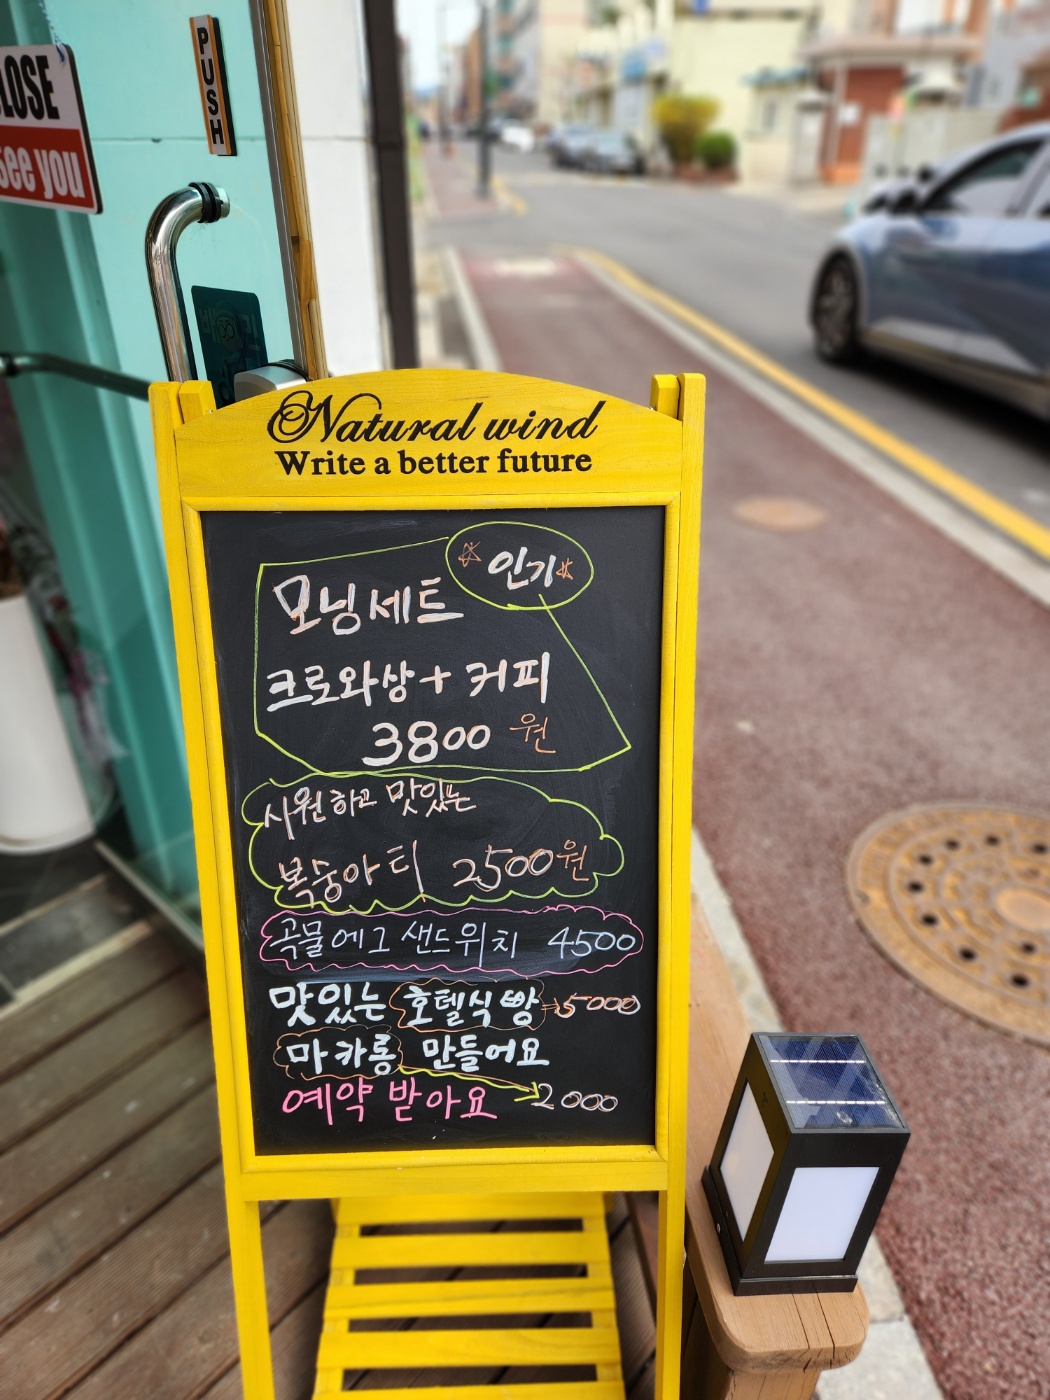 PUSH
LOSE
see you
Natural wind
Write a better future
인기
모닝세트
크로와상 + 커피
3800 원
시원하고 맛있는
복숭아 티 2500원
곡물에그 샌드위치 4500
맛있는 호텔식빵→5000
마카롱 만들어요
예약 받아요 →2000